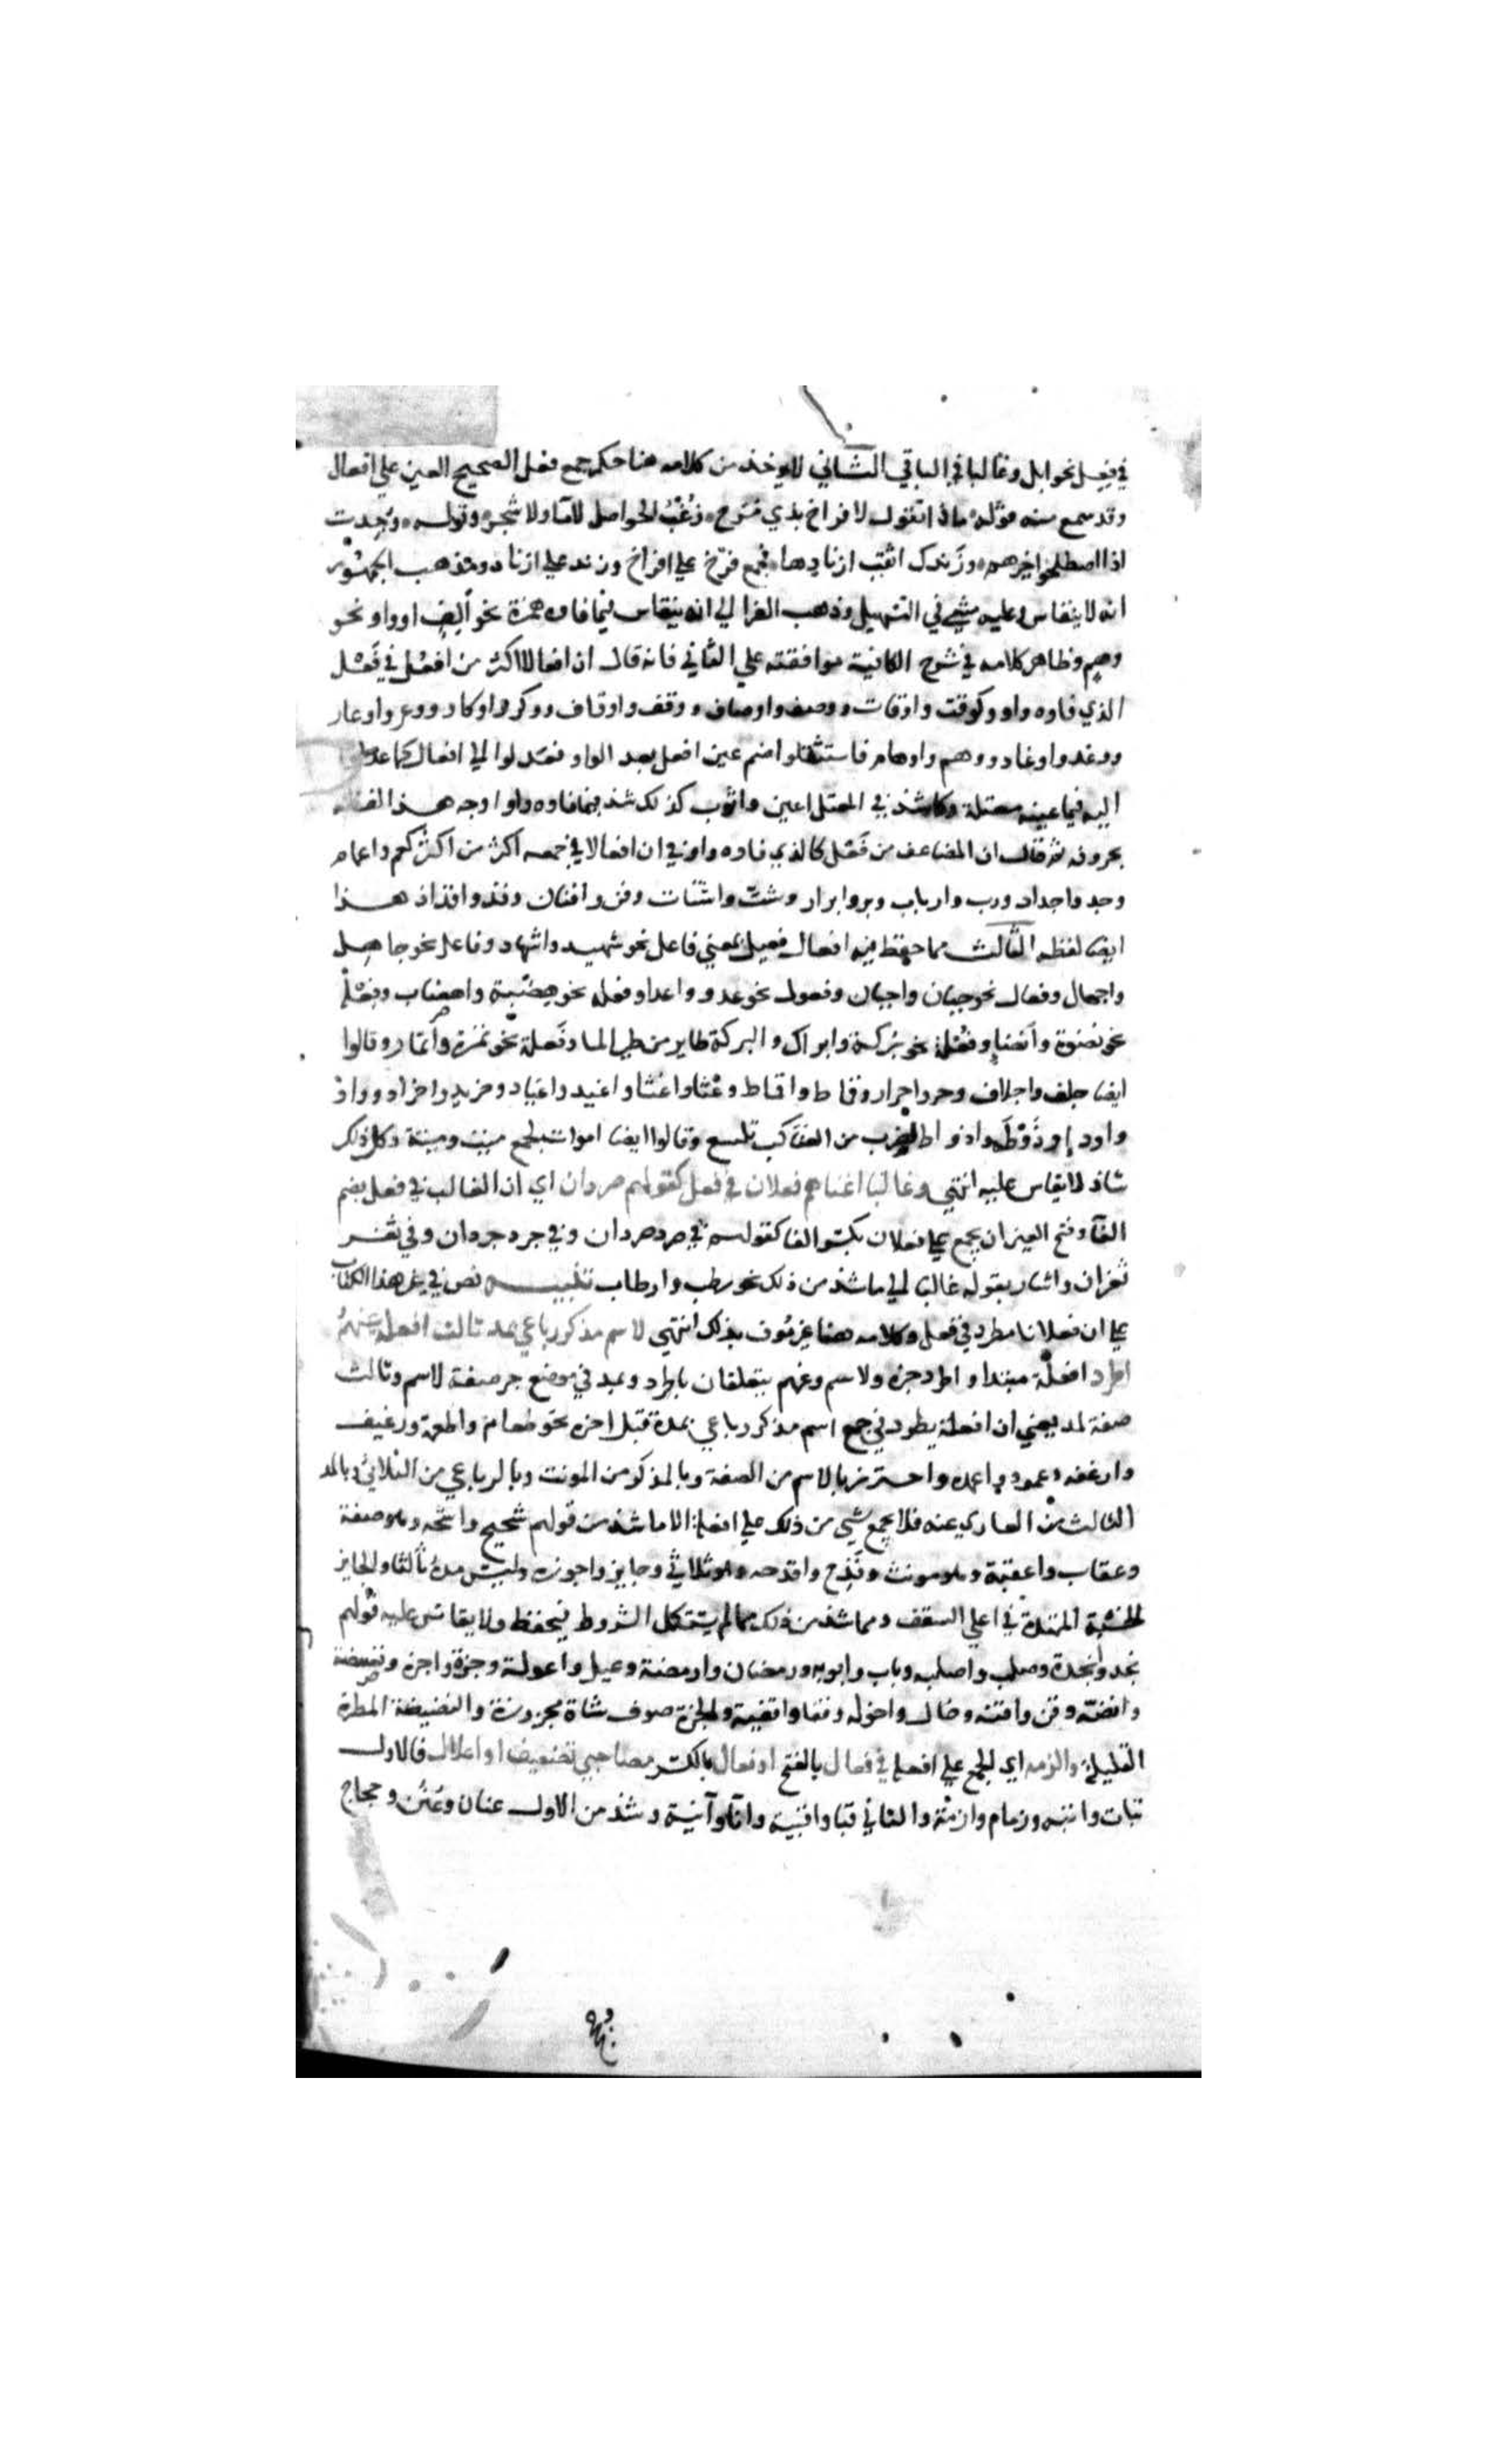 في فِعِل نحو ابل وغالبا في الباقي الثاني لا يوخذ من كلامه هنا حكم جمع فعل الصحيح العين علي افعال
وقد سمع منه قوله ماذا تقول لافراخ بذي مَرَخ زُغْبُ الحواصل لا ما ولا شجر وقوله وُجِدتَ
اذا اصطلحوا خيرهم وزَندك اثقب ازنادها فجمع فرخ علي افراخ وزند علي ازناد ومذهب الجمهور
انه لا ينقاس وعليه مشي في التسهيل وذهب الفرا الي انه ينقاس فيما فاوه همزة نحو اَلِفٍ او واو نحو
وهم وظاهر كلامه في شرح الكافية موافقته علي الثاني فانه قال ان افعالا اكثر من افعُل في فَعْل
الذي فاوه واو وكوقت واوقات ووصف واوصاف ووقف واوقاف ووكر واوكار ووعر واوعار
ووغد واوغاد ووهم واوهام فاستثقلوا ضم عين افعل بعد الواو فعدلوا الي افعال كما عدلوا
اليه فيما عينه معتلة وكما شذ في المعتل اعين واثوب كذلك شذ فيما فاوه واو اوجه هذا لفظه
بحروفه ثم قال ان المضاعف من فَعْل كالذي فاوه واو في ان افعالا في جمعه اكثر من اكثر كعم واعمام
وجد واجداد ورب وارباب وبر وابرار وشتّ واشتات وفن وافنان وفذ وافذاذ هذا
ايضا لفظه الثالث مما حفظ فيه افعال فعيل بمعني فاعل نحو شهيد واشهاد وفاعل نحو جاهل
واجهال وفعال نحو جبان واجبان وفعول نحو عدو واعدا وفعله نحو هضبة واهضاب وفِعْلة
نحو نضوة واَنضا وفُعْلة نحو بركة وابراك والبركة طاير من طير الما وفَعلة نحو نمرة وانمار وقالوا
ايضا جلف واجلاف وحر واحرار وقماط واقماط وغثا واغثا واغيد واغياد وخريد واخراد وواد
واوداء وذَوْطَه واذواط لضرب من العناكب تلسع وقالوا ايضا اموات لجمع ميت وميتة وكل ذلك
شاذ لا يقاس عليه انتهي وغالبا اغناهم فعلان في فعل كقولهم صردان اي ان الغالب في فعل بضم
الفا وفتح العين ان يجمع علي فعلان بكسر الفا كقولهم في صرد صردان وفي جرد جردان وفي نغر
نغران واشار بقوله غالبا الي ما شذ من ذلك نحو رطب وارطاب تنبيه نص في غير هذا الكتاب
علي ان فعلانا مطرد في فعل وكلامه هنا غير موف بذلك انتهي لاسم مذكر رباعي بمد ثالث افعلة عنهمُ
اطرد افعلة مبتدا واطرد خبره ولاسم وعنهم يتعلقان باطرد وبمد في موضع جر صفة لاسم وثالث
صفة لمد يعني ان افعلة يطرد في جمع اسم مذكر رباعي بمدة قبل اخره نحو طعام واطعمة ورغيف
وارغفه وعمود واعمده واحترز بالاسم من الصفة وبالمذكر من المونث وبالرباعي من الثلاثي وبالمد
الثالث من العاري عنه فلا يجمع شي من ذلك علي افعلة الا ما شذ من قولهم شحيح واشحه وهو صفة
وعقاب واعقبة وهو مونث وقَدَح واقدحه وهو ثلاثي وجايز واجوزه وليس مده ثالثا والجايز
الخشبة الممتدة في اعلي السقف ومما شذ من ذلك مما لم يستكمل الشروط فيحفظ ولا يقاس عليه قولهم
نجد وانجدة وصلب واصلبه وباب وابوبه ورمضان وارمضنة وعيل واعولة وجزة واجزه ونضيضة
وانضه وقن واقنه وخال واخوله وقفا واقفية والجزة صوف شاة مجزوزة والنضيضة المطرة
القليلة والزمه اي الجمع علي افعله في فعال بالفتح او فعال بالكسر مصاحبي تضعيف او اعلال فالاول
نبات وانبته وزمام وازمّة والثاني قبا واقبية وانا وآنية وشذ من الاول عنان وعُنُن وحجاج